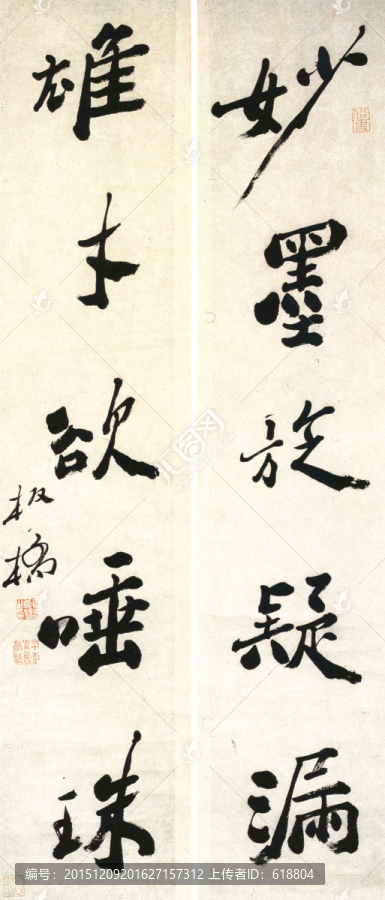 妙墨旋疑漏
雄才欲唾珠
板橋
编号：20151209201627157312 上传者ID：618804